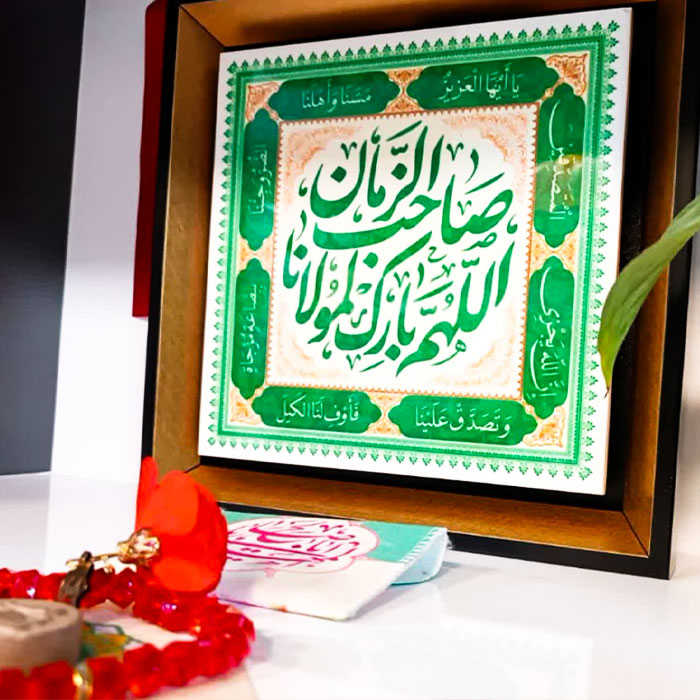 اللّٰهُمَّ بَارِك لِمَولانا
صَاحِب الزَّمان
يَا أَيُّهَا الْعَزِيزُ
مَسَّنَا وَأَهْلَنَا
الضُّرُّ وَجِئْنَا
بِبِضَاعَةٍ مُزْجَاةٍ
فَأَوْفِ لَنَا الْكَيْلَ
وَتَصَدَّقْ عَلَيْنَا
إِنَّ اللَّهَ يَجْزِي
الْمُتَصَدِّقِينَ